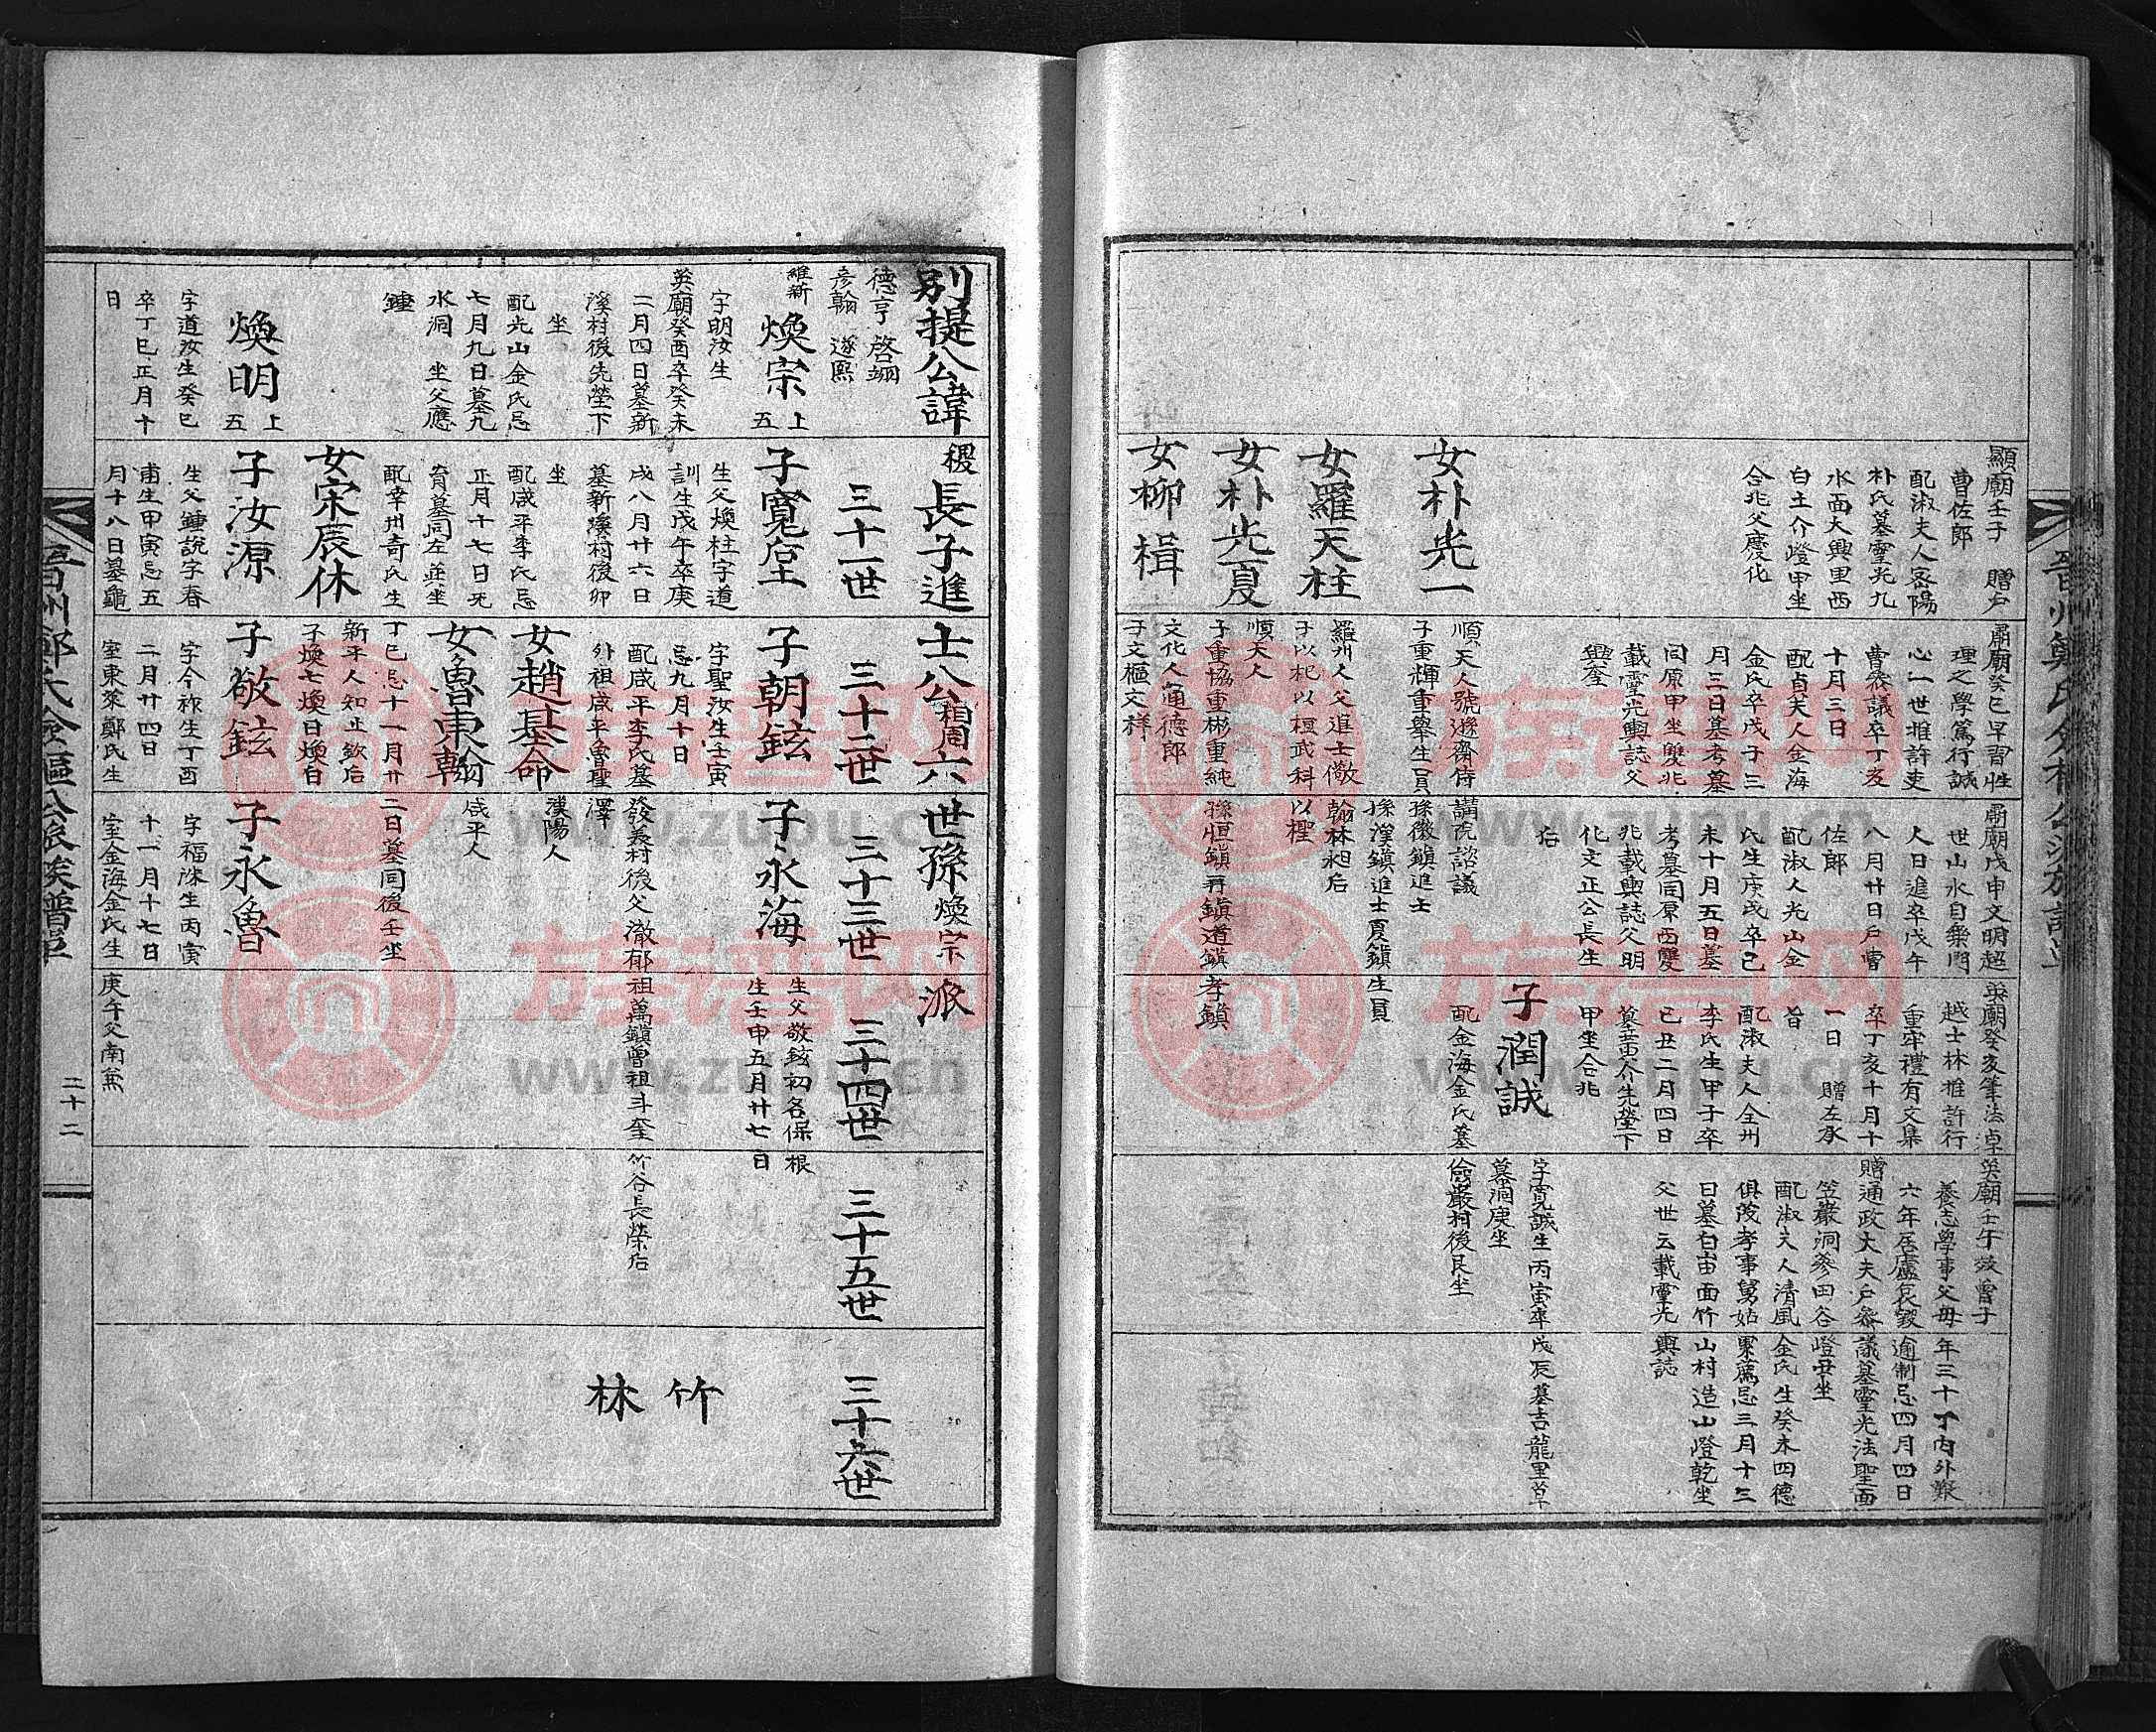 顯廟壬子 贈戶
曹佐郎
配淑夫人密陽
朴氏墓靈光九
水面大興里西
白土介嶝甲坐
合兆父慶化
女朴光一
女羅天柱
女朴光夏
女柳楫
肅廟癸巳早習性
理之學篤行誠
心一世推許吏
曹叅議卒丁亥
十月三日
配貞夫人金海
金氏卒戊子三
月三日墓考墓
同原甲坐雙兆
載靈光輿誌父
順天人號遜齋侍
子重輝重舉生員
羅州人父進士儆
子以杞以桓武科
順天人
子重協重彬重純
文化人通德郎
子文樞文樣
肅廟戊申文明超
世山水自樂門
人日進卒戊午
八月廿日戶曹
佐郎
配淑人光山金
氏生庚戌卒己
未十月五日墓
考墓同原酉雙
兆載輿誌父明
化文正公長生
后
講院諮議
孫徽鎮進士
孫漢鎮進士夏鎮
翰林昶后
以檉
孫恒鎮再鎮道鎮
英廟癸亥筆法卓
越士林推許行
重宰禮有文集
卒丁亥十月十
一日 贈左承
旨
配淑夫人全州
李氏生甲子卒
己丑二月四日
墓黃介先塋下
甲坐合兆
子潤誠
配金海金氏墓
生員
孝鎮
英廟壬午效曾子
養志學事父母
六年居廬哀毀
贈通政大夫戶叅
笠巖洞參田谷
配淑夫人清風
俱茂孝事舅姑
日墓白宙面竹
父世云載靈光
字寬誠生丙寅卒
墓洞庚坐
儉巖村後艮坐
年三十丁內外艱
逾制忌四月四日
議墓靈光法聖面
嶝尹坐
金氏生癸未四德
累薦忌三月十三
山村造山嶝乾坐
輿誌
戊辰墓吉龍里草
別提公諱稷長子進士公相周六世孫煥宗派
德亨 啓翊
彥翰 遂熙
維新
三十一世
三十二世
三十三世
三十四世
三十五世
三十六世
煥宗
上五
字明汝生
英廟癸酉卒癸未
二月四日墓新
溪村後先塋下
坐
配光山金氏忌
七月九日墓九
水洞 坐父應
鍾
煥明
上五
字道汝生癸巳
卒丁巳正月十
日
子寬㞐
生父煥柱字道
訓生戊午卒庚
戌八月廿六日
墓新溪村後卯
坐
配咸平李氏忌
正月十七日旡
育墓同左並坐
配幸州奇氏生
女宋辰休
子汝源
生父鍾說字春
甫生甲寅忌五
月十八日墓龜
子朝鉉
字聖汝生壬寅
忌九月十日
配咸平李氏墓
外祖咸平魯聖
女趙基命
女魯東翰
丁巳忌十一月廿
新平人知止欽后
子煥七煥日煥白
子敬鉉
字今祚生丁酉
二月廿四日
室東萊鄭氏生
子永海
發義村後父澈郁
澤
漢陽人
咸平人
二日墓同後壬坐
子永魯
字福洙生丙寅
十一月十七日
室金海金氏生
生父敬鉉初名保根
生壬申五月廿七日
祖萬鎮曾祖斗奎
竹谷長榮后
庚午父南薰
竹林
二十二